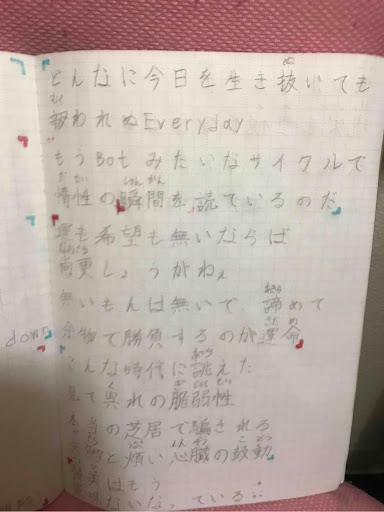 どんなに今日を生き抜いても
報われぬEveryday
もうBotみたいなサイクルで
惰性の瞬間を読ているのだ
運も希望も無いならば
尚更しょうがねぇ
無いもんは無いで 諦めて
余物で勝負するのが運命
こんな時代に誂えた
見て呉れの脆弱性
の芝居で騙される
と煩い心臓の鼓動
はもう
ないなっている